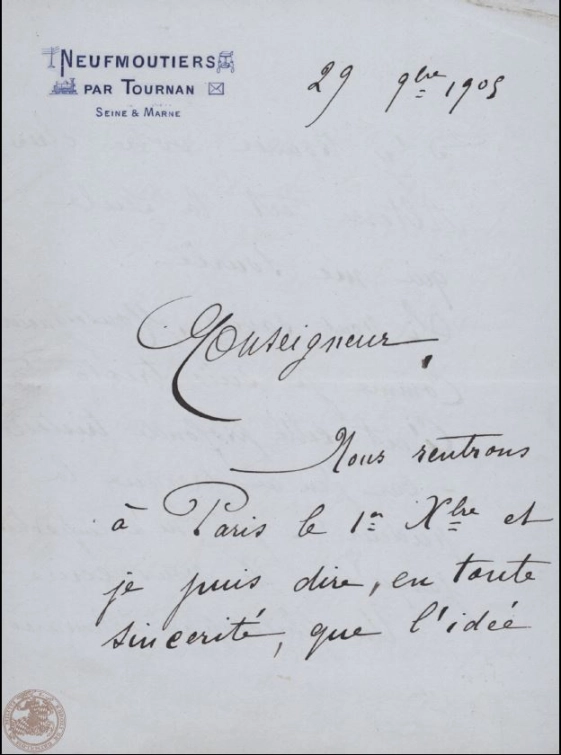 NEUFMOUTIERS
PAR TOURNAN
SEINE & MARNE
29 9bre 1905
Monseigneur,
Nous rentrons
à Paris le 1er Xbre et
je puis dire, en toute
sincerité, que l'idée